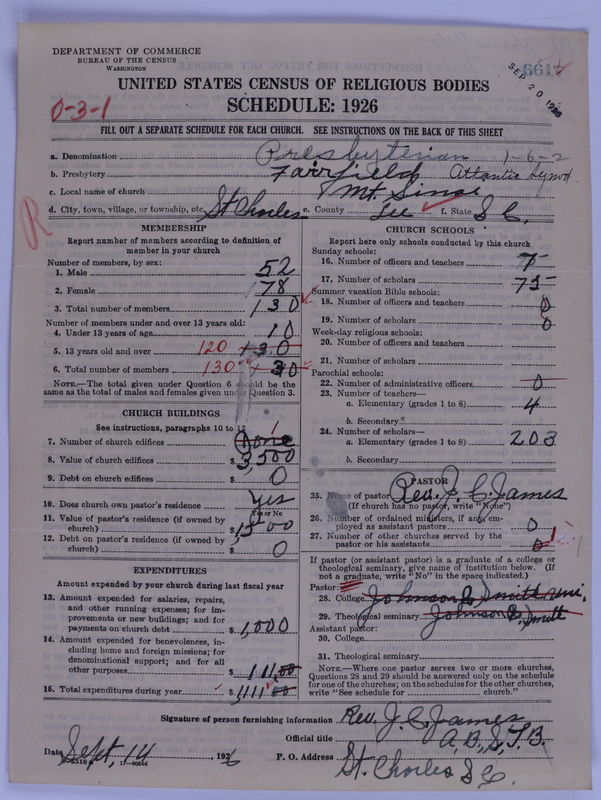 DEPARTMENT OF COMMERCE
BUREAU OF THE CENSUS
WASHINGTON
SEP 20 1926
0-3-1
UNITED STATES CENSUS OF RELIGIOUS BODIES
SCHEDULE: 1926
FILL OUT A SEPARATE SCHEDULE FOR EACH CHURCH. SEE INSTRUCTIONS ON THE BACK OF THIS SHEET
a. Denomination Presbyterian 1-6-2
b. Presbytery Fairfield Atlantic Synod
c. Local name of church Mt. Sinai
d. City, town, village, or township, etc. St Charles e. County Lee f. State S C.
R
MEMBERSHIP
Report number of members according to definition of member in your church
Number of members, by sex:
1. Male 52
2. Female 78
3. Total number of members 130
Number of members under and over 13 years old:
4. Under 13 years of age 10
5. 13 years old and over 120 130
6. Total number of members 130
NOTE.—The total given under Question 6 should be the same as the total of males and females given under Question 3.
CHURCH BUILDINGS
See instructions, paragraphs 10 to 12
7. Number of church edifices one
8. Value of church edifices $ 3500
9. Debt on church edifices $ 0
10. Does church own pastor's residence Yes
Yes or No
11. Value of pastor's residence (if owned by church) $ 1500
12. Debt on pastor's residence (if owned by church) $ 0
EXPENDITURES
Amount expended by your church during last fiscal year
13. Amount expended for salaries, repairs, and other running expenses; for improvements or new buildings; and for payments on church debt $ 1,000
14. Amount expended for benevolences, including home and foreign missions; for denominational support; and for all other purposes $ 111.00
15. Total expenditures during year $ 1111.00
CHURCH SCHOOLS
Report here only schools conducted by this church
Sunday schools:
16. Number of officers and teachers 7
17. Number of scholars 75
Summer vacation Bible schools:
18. Number of officers and teachers 0
19. Number of scholars 0
Week-day religious schools:
20. Number of officers and teachers
21. Number of scholars
Parochial schools:
22. Number of administrative officers 0
23. Number of teachers—
a. Elementary (grades 1 to 8) 4
b. Secondary
24. Number of scholars—
a. Elementary (grades 1 to 8) 203
b. Secondary
PASTOR
25. Name of pastor Rev. J. C. James
(If church has no pastor, write "None")
26. Number of ordained ministers, if any, employed as assistant pastors 0
27. Number of other churches served by the pastor or his assistants 0 1
If pastor (or assistant pastor) is a graduate of a college or theological seminary, give name of institution below. (If not a graduate, write "No" in the space indicated.)
Pastor:
28. College Johnson C, Smith Uni.
29. Theological seminary Johnson C, Smith
Assistant pastor:
30. College
31. Theological seminary
NOTE.—Where one pastor serves two or more churches, Questions 28 and 29 should be answered only on the schedule for one of the churches; on the schedules for the other churches, write "See schedule for church."
Signature of person furnishing information Rev. J. C. James
Official title A. B., S. T. B.
Date Sept, 14, 1926 P. O. Address St. Charles S C.